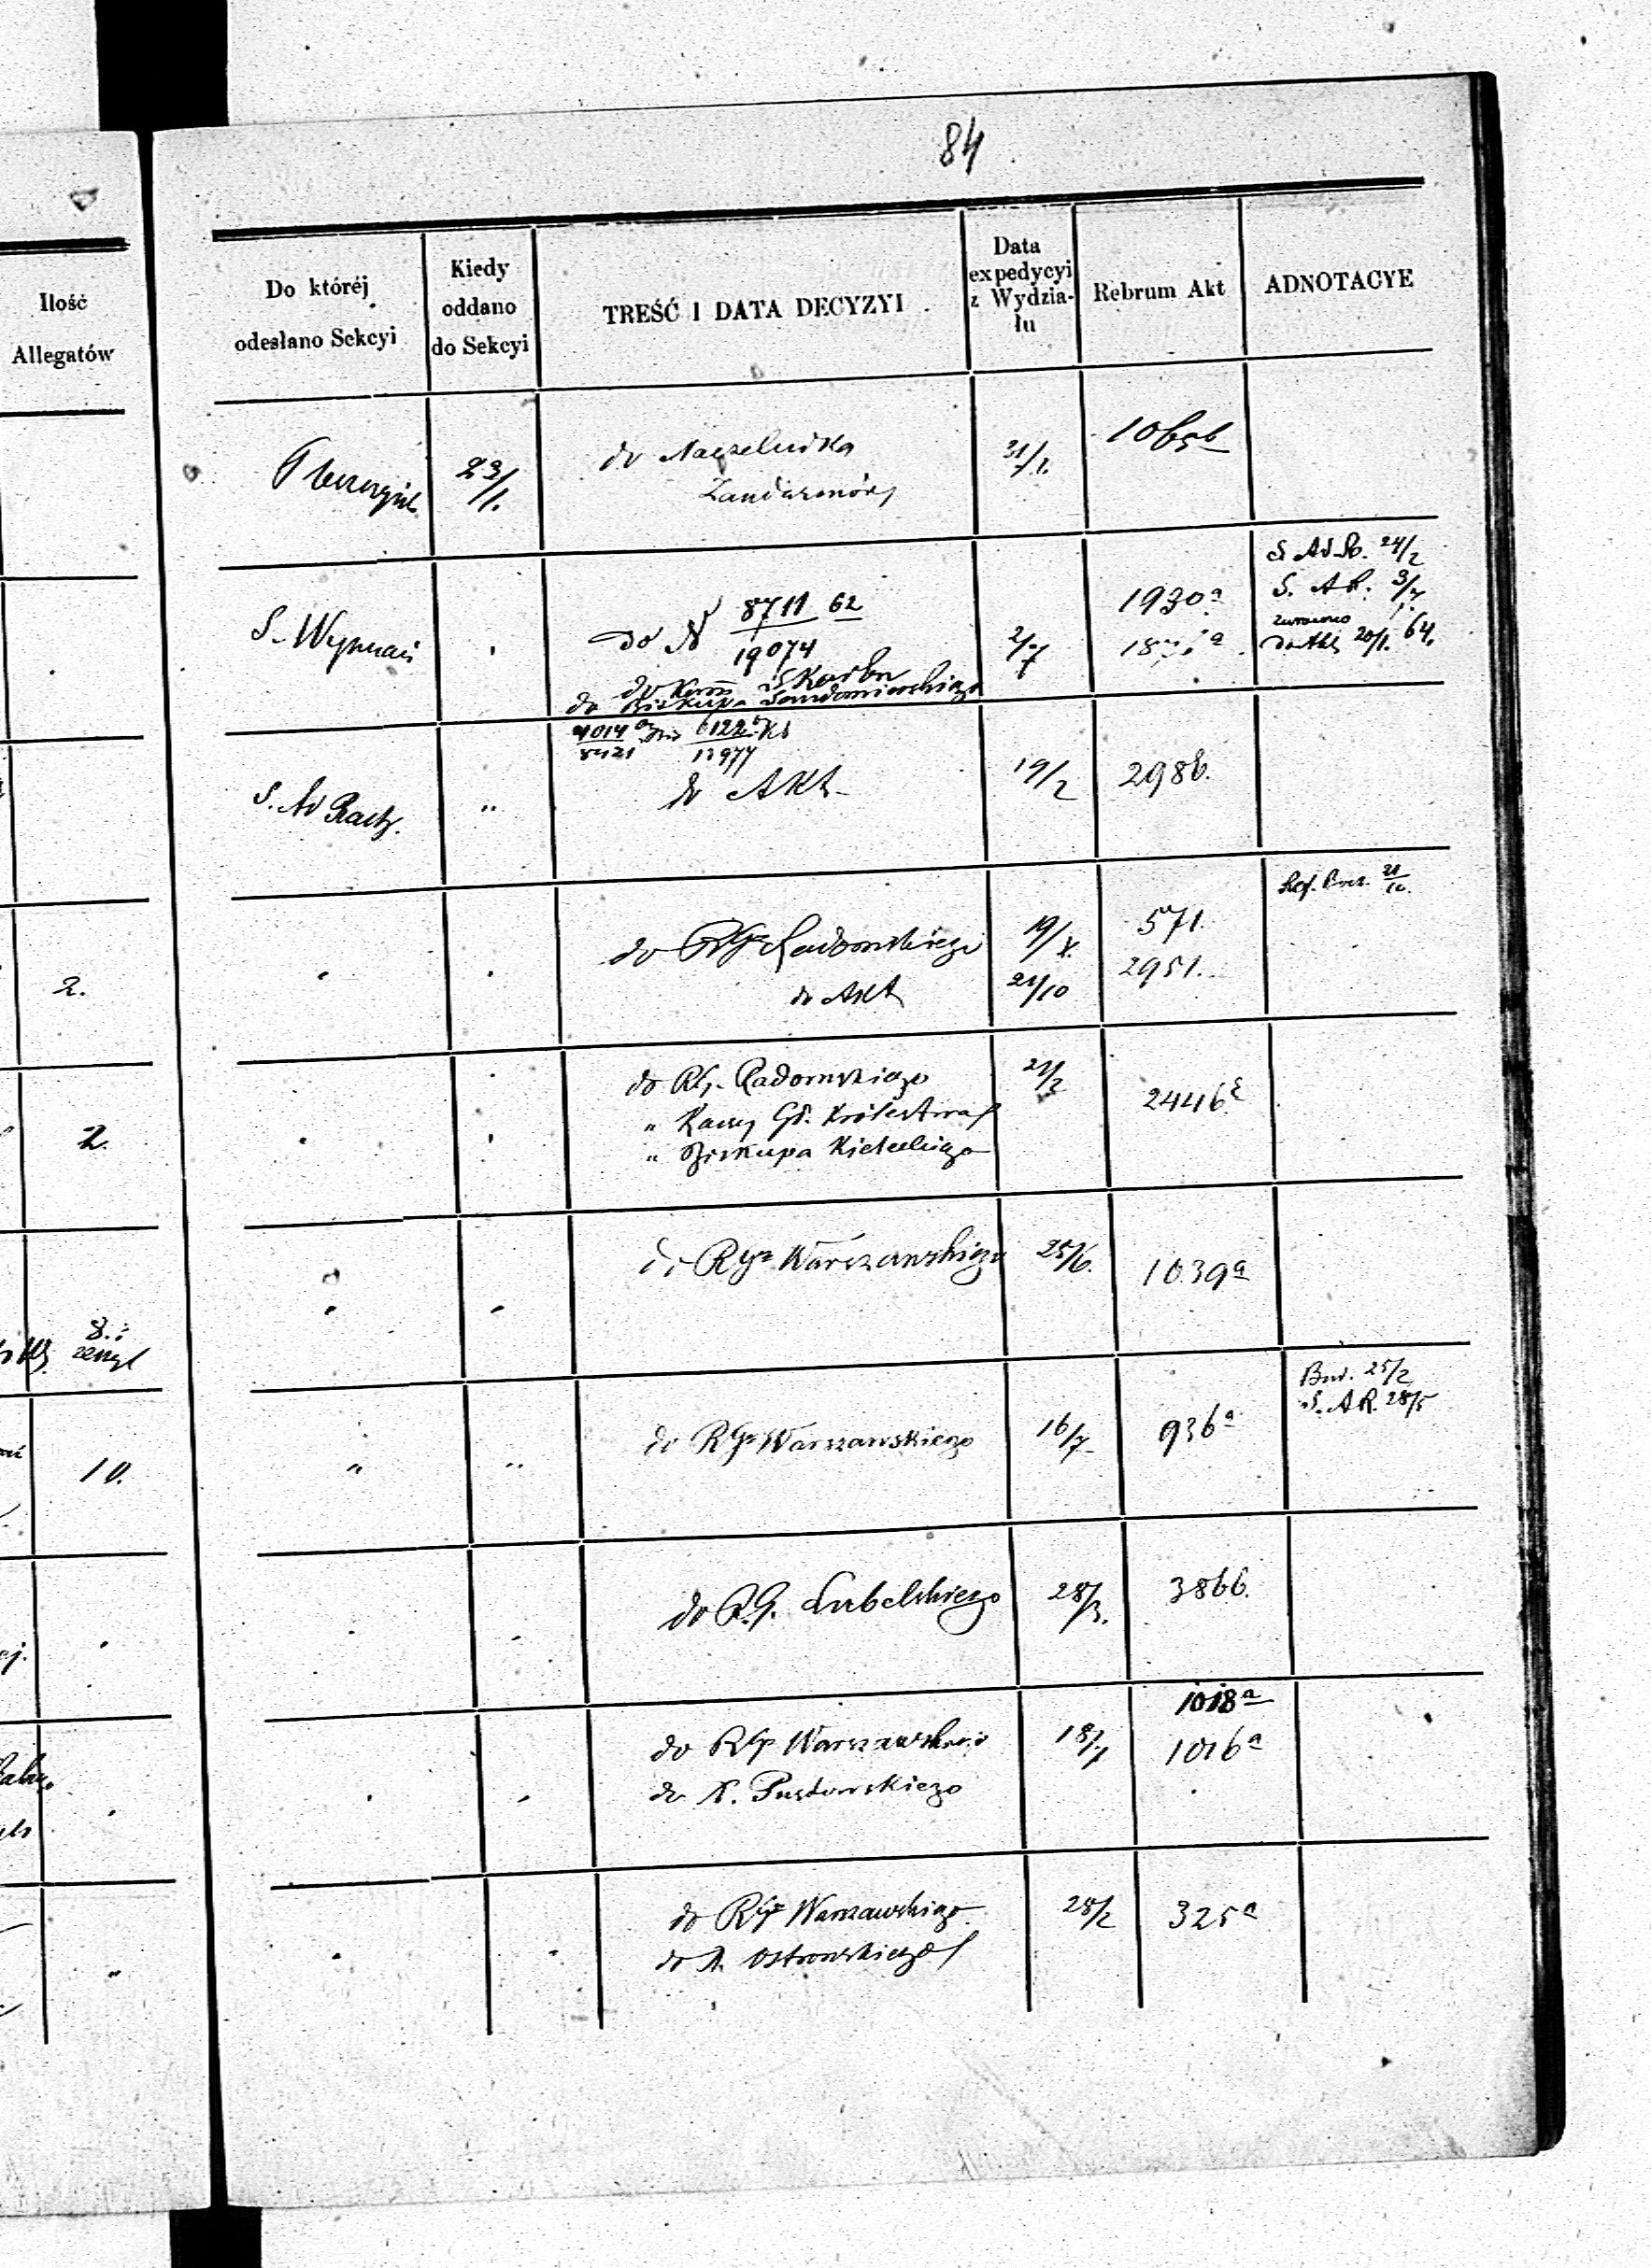 84
Ilość
Allegatów
Do któréj
odesłano Sekcyi
Kiedy
oddano
do Sekcyi
TREŚĆ I DATA DECYZYI
Data
expedycyi
z Wydzia-
łu
Rebrum Akt
ADNOTACYE
23/1.
do Naczelnika
Żandarmów
31/1.
S. Wyznań
do N 8711 62
19074
do Kom Skarbu
do Biskupa Sandomierskiego
2/7
1930a
S. Ad. R. 24/2
S. A R. 3/7
do Akt 20/1. 64.
S. Ad Rach.
"
do Akt
19/2
298b.
2.
do RGo Radomskiego
do Akt
19/X.
21/10
571.
2951.
21/10.
2.
do RG. Radomskiego
" Kassy Gł. Królestwa
" Biskupa Kieleckiego
21/2
2446
8.
do RGo Warszawskiego
25/6.
1039a
10.
"
"
do RGo Warszawskiego
16/7
936a
Bud. 25/2
S. A R. 28/5
do R.G. Lubelskiego
28/3.
386b.
do RGo Warszawskiego
do X. Pustowskiego
18/7
1018a
1016a
"
do RGo Warszawskiego
do X. Ostrowskiego
28/2
325a